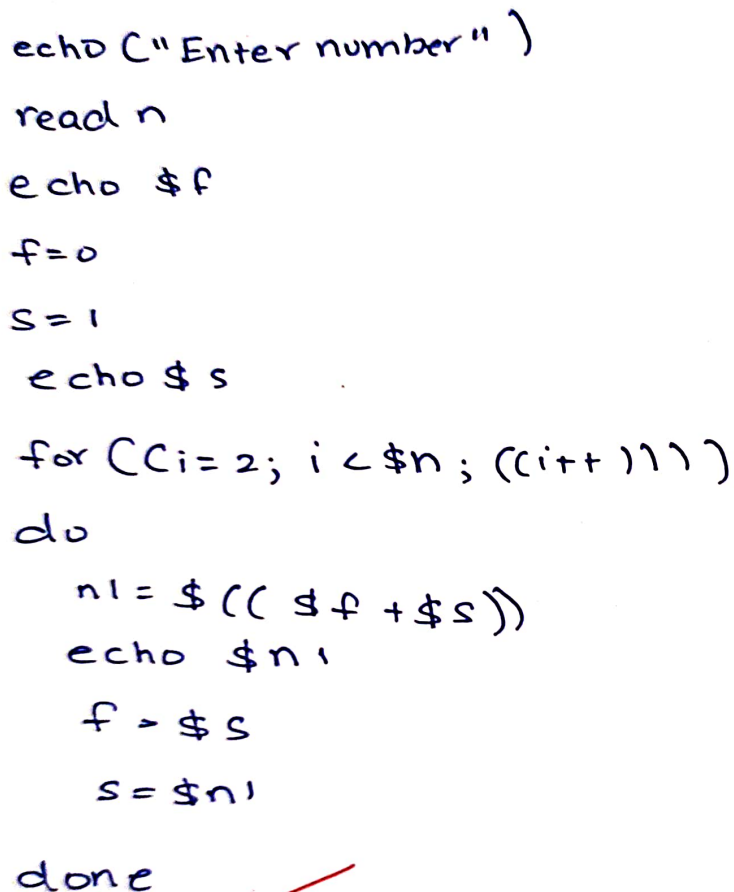 echo ("Enter number")
read n
echo $f
f=0
s=1
echo $s
for ((i=2; i<$n; ((i++))))
do
n1=$(($f+$s))
echo $n1
f=$s
s=$n1
done